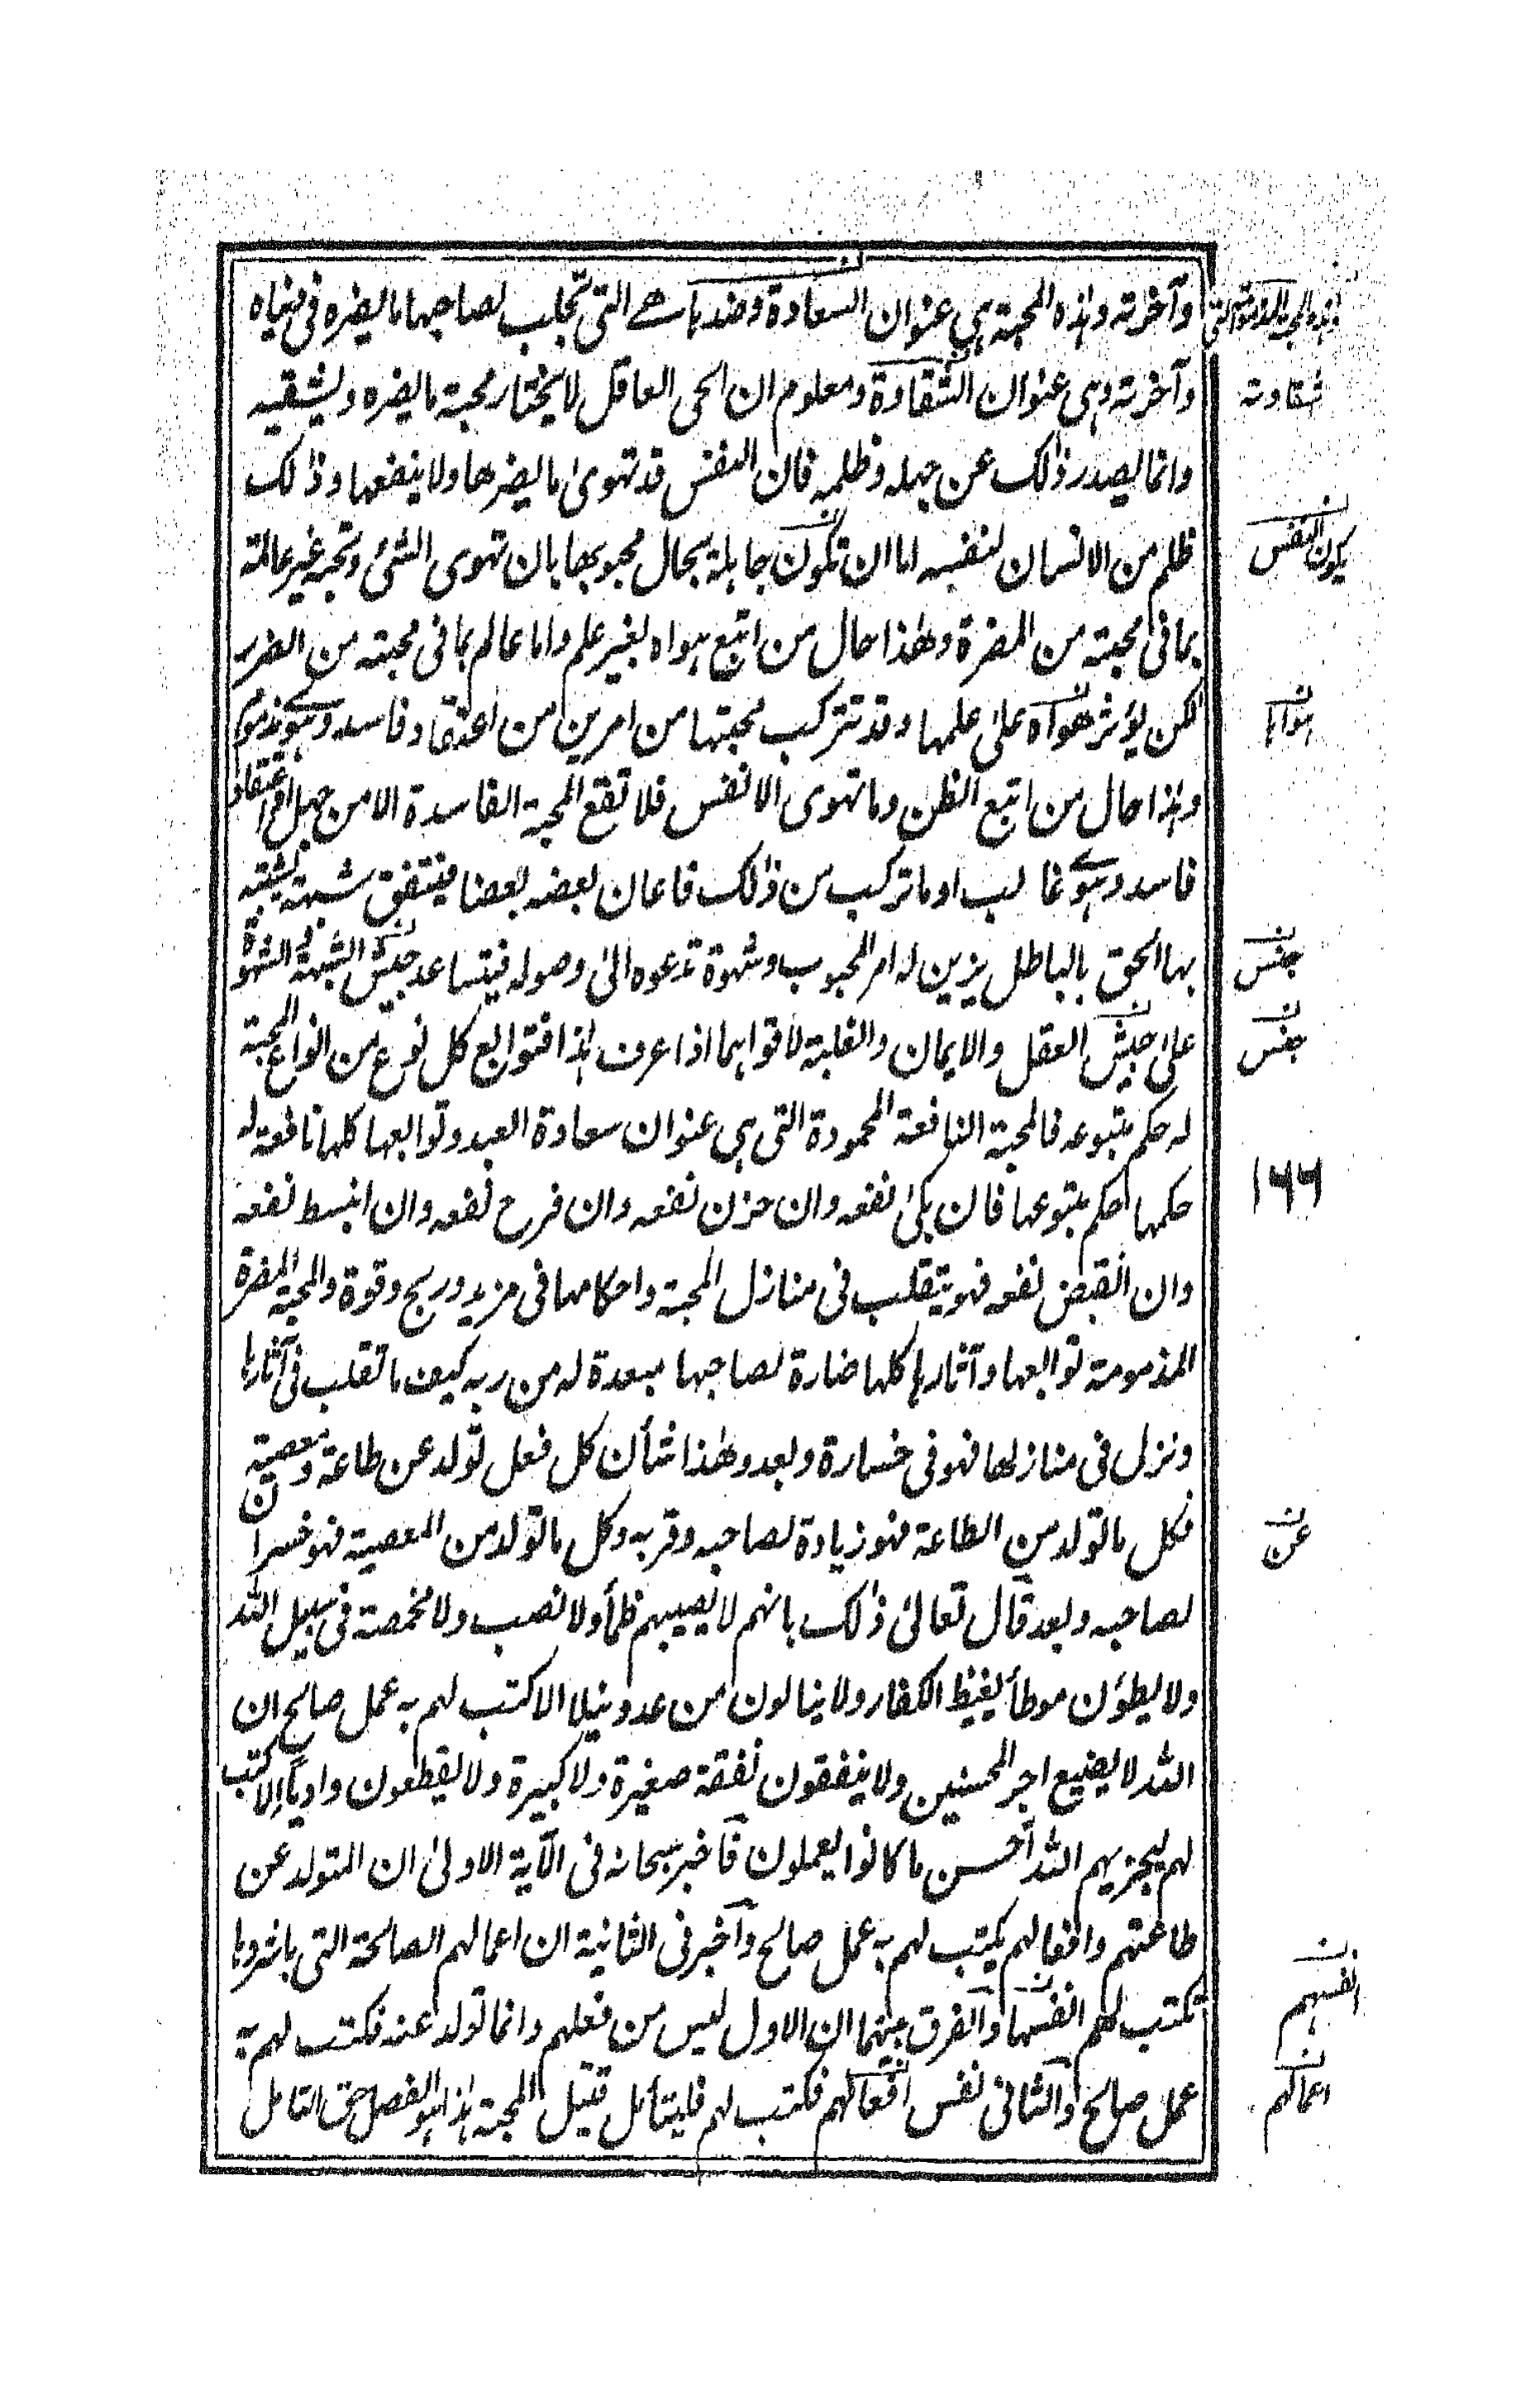 وآخرته وهذه المحبة هي عنوان السعادة وضدها هے التى تجلب لصاحبها ما يضره فى دنياه
وآخرته وهى عنوان الشقاوة ومعلوم ان الحى العاقل لا يختار محبة ما يضره ويشقيه
شقاوته
وانما يصدر ذلك عن جهله وظلمه فان النفس قد تهوى ما يضرها ولا ينفعها وذلك
ظلم من الانسان لنفسه اما ان تكون جاهلة بحال محبوبها بان تهوى الشئ وتحبه غير عالمة
يكون النفس
بما فى محبته من المضرة وهذا حال من اتبع هواه بغير علم واما عالم بما فى محبته من الضرر
لكن يؤثر هواه على علمها وقد تتركب محبتها من امرين من اعتقاد فاسد وهوے مذموم
هواها
وهذا حال من اتبع الظن وما تهوى الانفس فلا تقع المحبة الفاسدة الا من جهل او اعتقاد
فاسد وهوے غالب او ما تركب من ذلك فاعان بعضه بعضا فيتفق شبهة يشتبه
بها الحق بالباطل يزين له امر المحبوب وشهوة تدعوه الى وصوله فيتساعد جيش الشبهة والشهوة
جنس
على جيش العقل والايمان والغلبة لاقواهما اذا عرف هذا فتوابع كل نوع من انواع المحبة
جنس
له حكم متبوعه فالمحبة النافعة المحمودة التى هى عنوان سعادة العبد وتوابعها كلها نافعة له
حكمها حكم متبوعها فان بكى نفعه وان حزن نفعه وان فرح نفعه وان انبسط نفعه
١٦٦
وان انقبض نفعه فهو يتقلب فى منازل المحبة واحكامها فى مزيد وربح وقوة والمحبة المضرة
المذمومة توابعها وآثارها كلها ضارة لصاحبها مبعدة له من ربه كيف ما تقلب فى آثارها
ونزل فى منازلها فهو فى خسارة وبعد وهذا شأن كل فعل تولد عن طاعة ومعصية
فكل ما تولد من الطاعة فهو زيادة لصاحبه وقربه وكل ما تولد من المعصية فهو خسران
عن
لصاحبه وبعد قال تعالى ذلك بانهم لا يصيبهم ظمأ ولا نصب ولا مخمصة فى سبيل الله
ولا يطؤن موطأ يغيظ الكفار ولا ينالون من عدو نيلا الا كتب لهم به عمل صالح ان
الله لا يضيع اجر المحسنين ولا ينفقون نفقة صغيرة ولا كبيرة ولا يقطعون واديا الا كتب
لهم ليجزيهم الله احسن ما كانوا يعملون فاخبر سبحانه فى الآية الاولى ان المتولد عن
طاعتهم وافعالهم يكتب لهم به عمل صالح وآخبر فى الثانية ان اعمالهم الصالحة التى باشروها
تكتب لهم انفسها والفرق بينهما ان الاول ليس من فعلهم وانما تولد عنه فكتب لهم به
انفسهم
عمل صالح والثانى نفس افعالهم فكتب لهم فليتأمل قتيل المحبة هذا الفصل حق التامل
اعمالهم